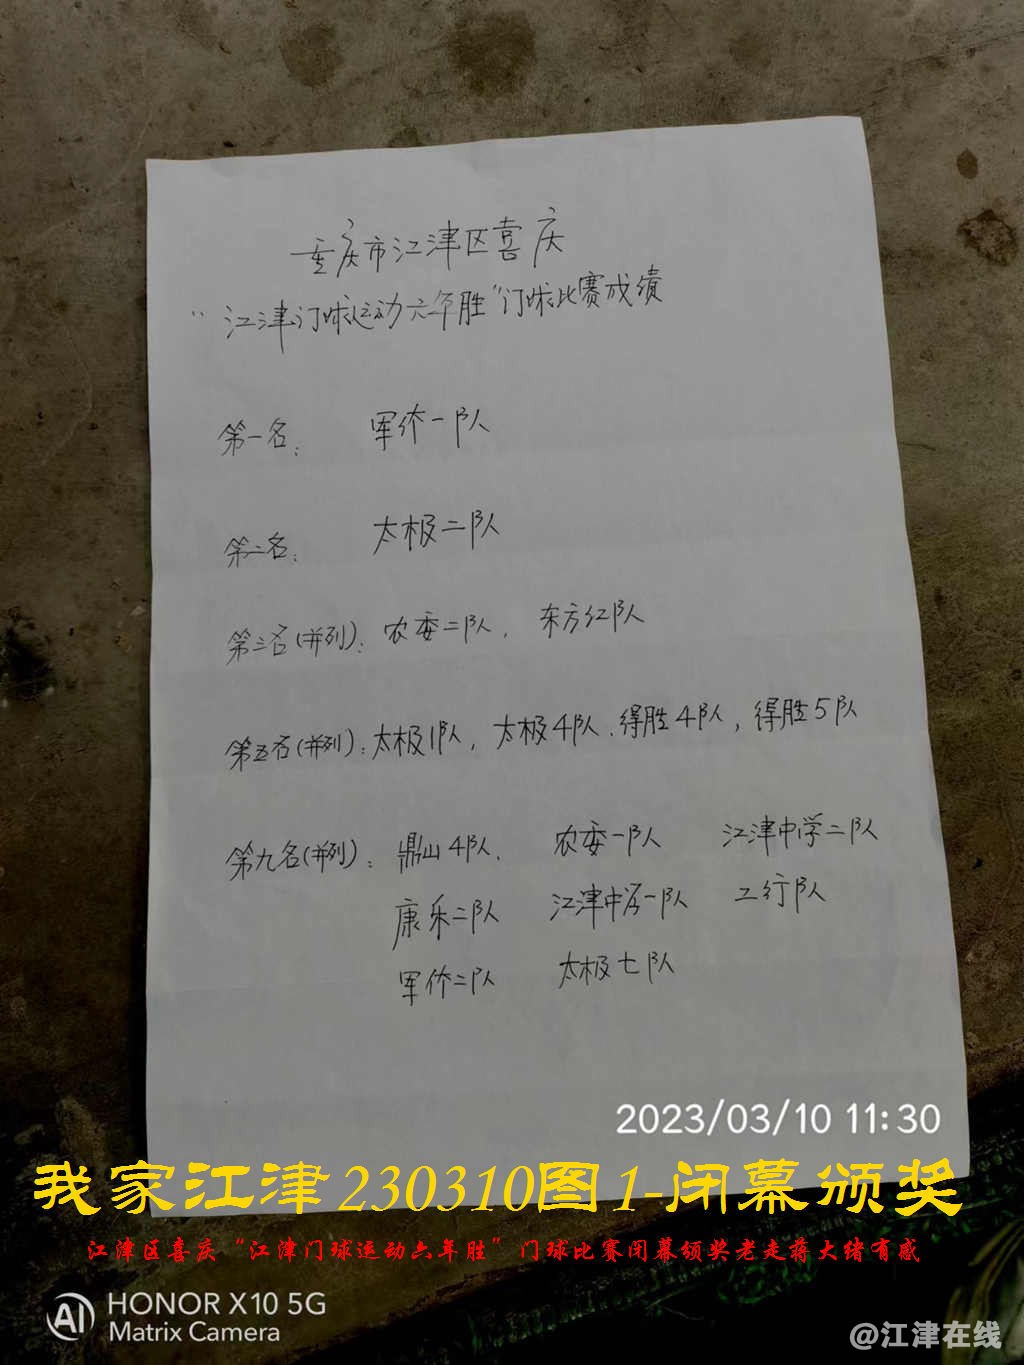 重庆市江津区喜庆
"江津门球运动六年胜"门球比赛成绩
第一名: 军休一队
第二名: 太极二队
第三名(并列): 农委二队, 东方红队
第五名(并列): 太极1队, 太极4队、得胜4队, 得胜5队
第九名(并列): 鼎山4队、 农委一队 江津中学二队
康乐二队 江津中学一队 工行队
军休二队 太极七队
2023/03/10 11:30
我家江津230310图1-闭幕颁奖
江津区喜庆“江津门球运动六年胜”门球比赛闭幕颁奖老走蒋大绪有感
AI HONOR X10 5G
Matrix Camera
@江津在线